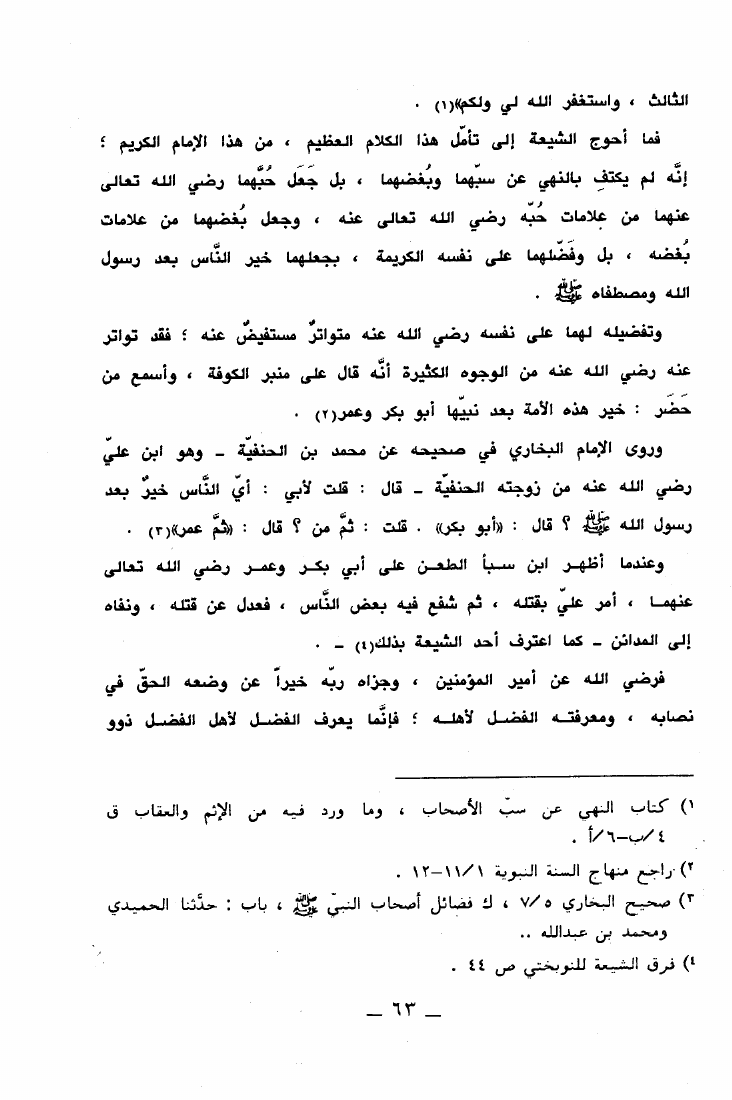 الثالث ، واستغفر الله لي ولكم»(١) .
فما أحوج الشيعة إلى تأمّل هذا الكلام العظيم ، من هذا الإمام الكريم ؛
إنَّه لم يكتفِ بالنهي عن سبّهما وبُغضهما ، بل جَعَل حُبَّهما رضي الله تعالى
عنهما من علامات حُبّه رضي الله تعالى عنه ، وجعل بُغضهما من علامات
بُغضه ، بل وفَضَّلهما على نفسه الكريمة ، بجعلهما خير النَّاس بعد رسول
الله ومصطفاه ﷺ .
وتفضيله لهما على نفسه رضي الله عنه متواترٌ مستفيضٌ عنه ؛ فقد تواتر
عنه رضي الله عنه من الوجوه الكثيرة أنَّه قال على منبر الكوفة ، وأسمع من
حَضَر : خير هذه الأمة بعد نبيّها أبو بكر وعمر(٢) .
وروى الإمام البخاري في صحيحه عن محمد بن الحنفيّة ــ وهو ابن عليّ
رضي الله عنه من زوجته الحنفيّة ــ قال : قلت لأبي : أيّ النَّاس خيرٌ بعد
رسول الله ﷺ ؟ قال : «أبو بكر» . قلت : ثمَّ من ؟ قال : «ثمَّ عمر»(٣) .
وعندما أظهر ابن سبأ الطعن على أبي بكر وعمر رضي الله تعالى
عنهما ، أمر عليّ بقتله ، ثم شفع فيه بعض النَّاس ، فعدل عن قتله ، ونفاه
إلى المدائن ــ كما اعترف أحد الشيعة بذلك(٤) ــ .
فرضي الله عن أمير المؤمنين ، وجزاه ربّه خيراً عن وضعه الحقّ في
نصابه ، ومعرفته الفضل لأهله ؛ فإنَّما يعرف الفضل لأهل الفضل ذوو
١) كتاب النهي عن سبّ الأصحاب ، وما ورد فيه من الإثم والعقاب ق
٤/ب–٦/أ .
٢) راجع منهاج السنة النبوية ١/١١–١٢ .
٣) صحيح البخاري ٧/٥ ، ك فضائل أصحاب النبيّ ﷺ ، باب : حدَّثنا الحميدي
ومحمد بن عبدالله ..
٤) فرق الشيعة للنوبختي ص ٤٤ .
ــ ٦٣ ــ